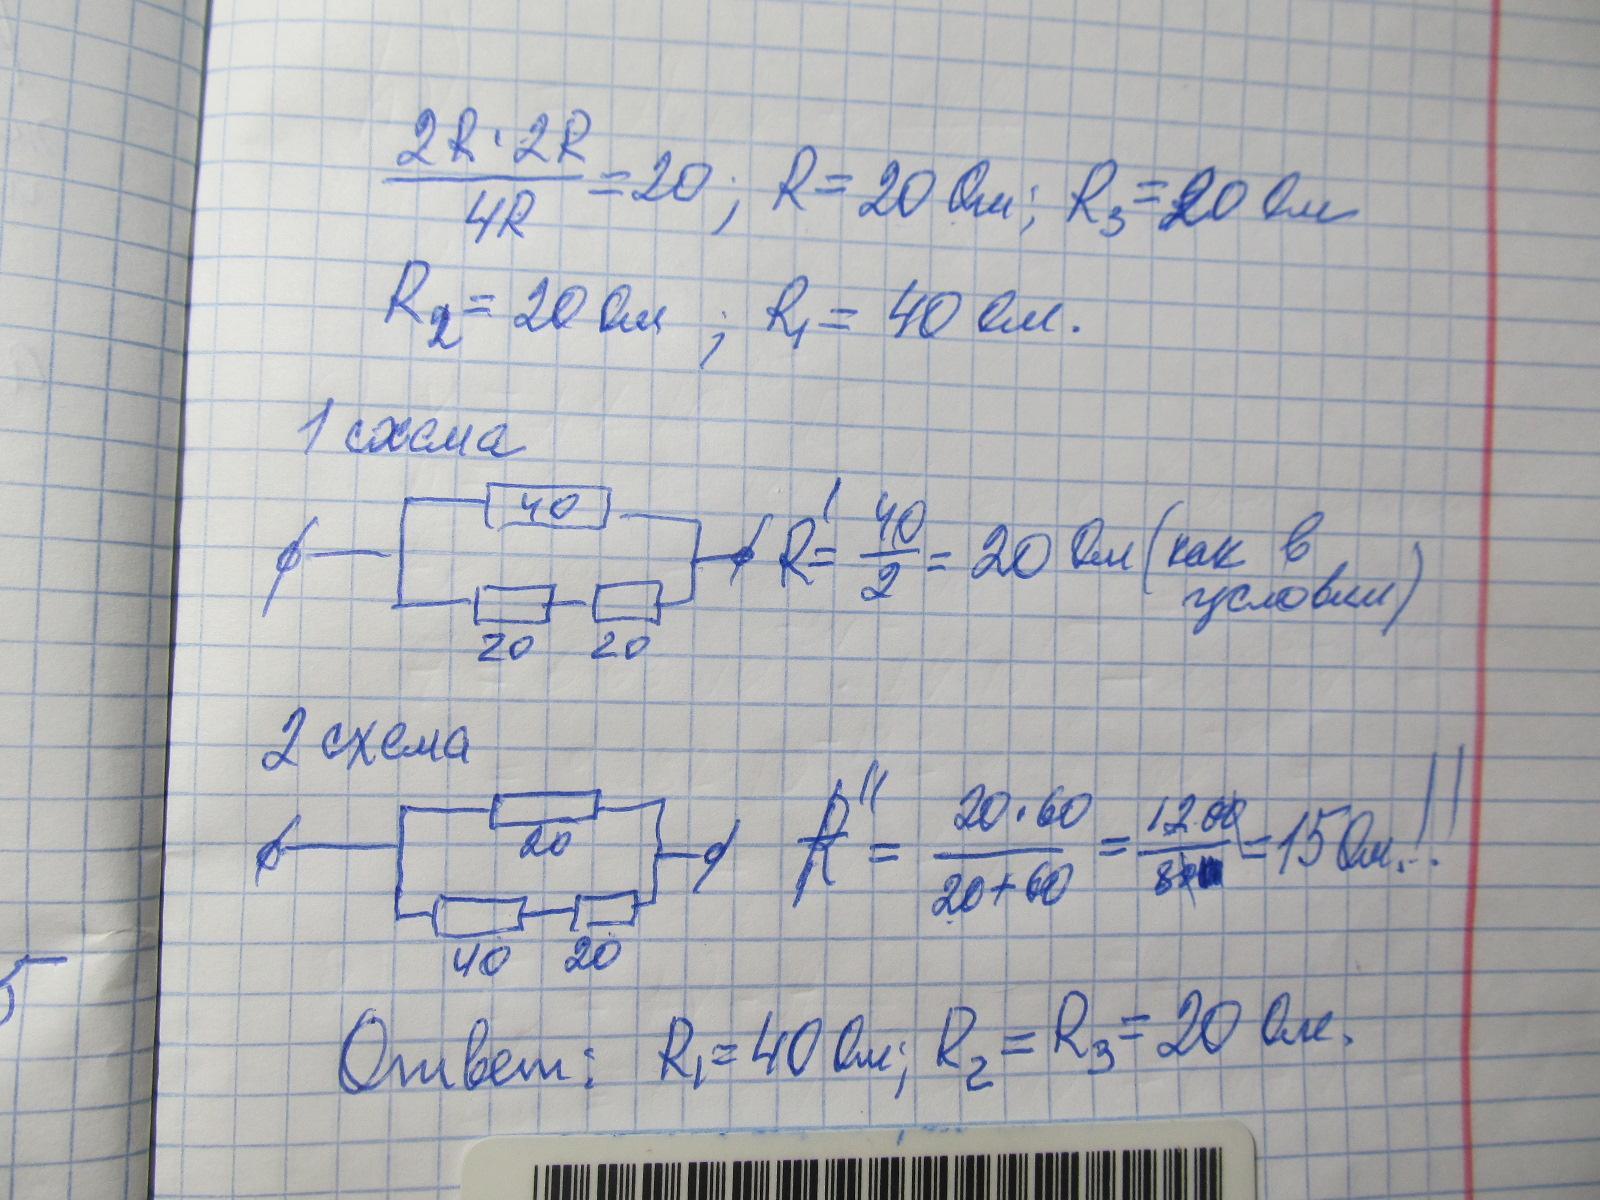 2R·2R/4R = 20; R = 20 Ом; R₃ = 20 Ом
R₂ = 20 Ом; R₁ = 40 Ом.
1 схема
40
R' = 40/2 = 20 Ом (как в
условии)
20 20
2 схема
20
R'' = 20·60/20+60 = 1200/80 = 15 Ом.!!
40 20
Ответ: R₁ = 40 Ом; R₂ = R₃ = 20 Ом.